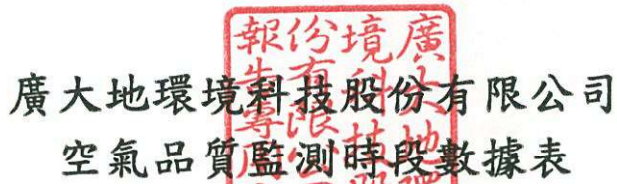 廣大地環境科技股份有限公司
空氣品質監測時段數據表